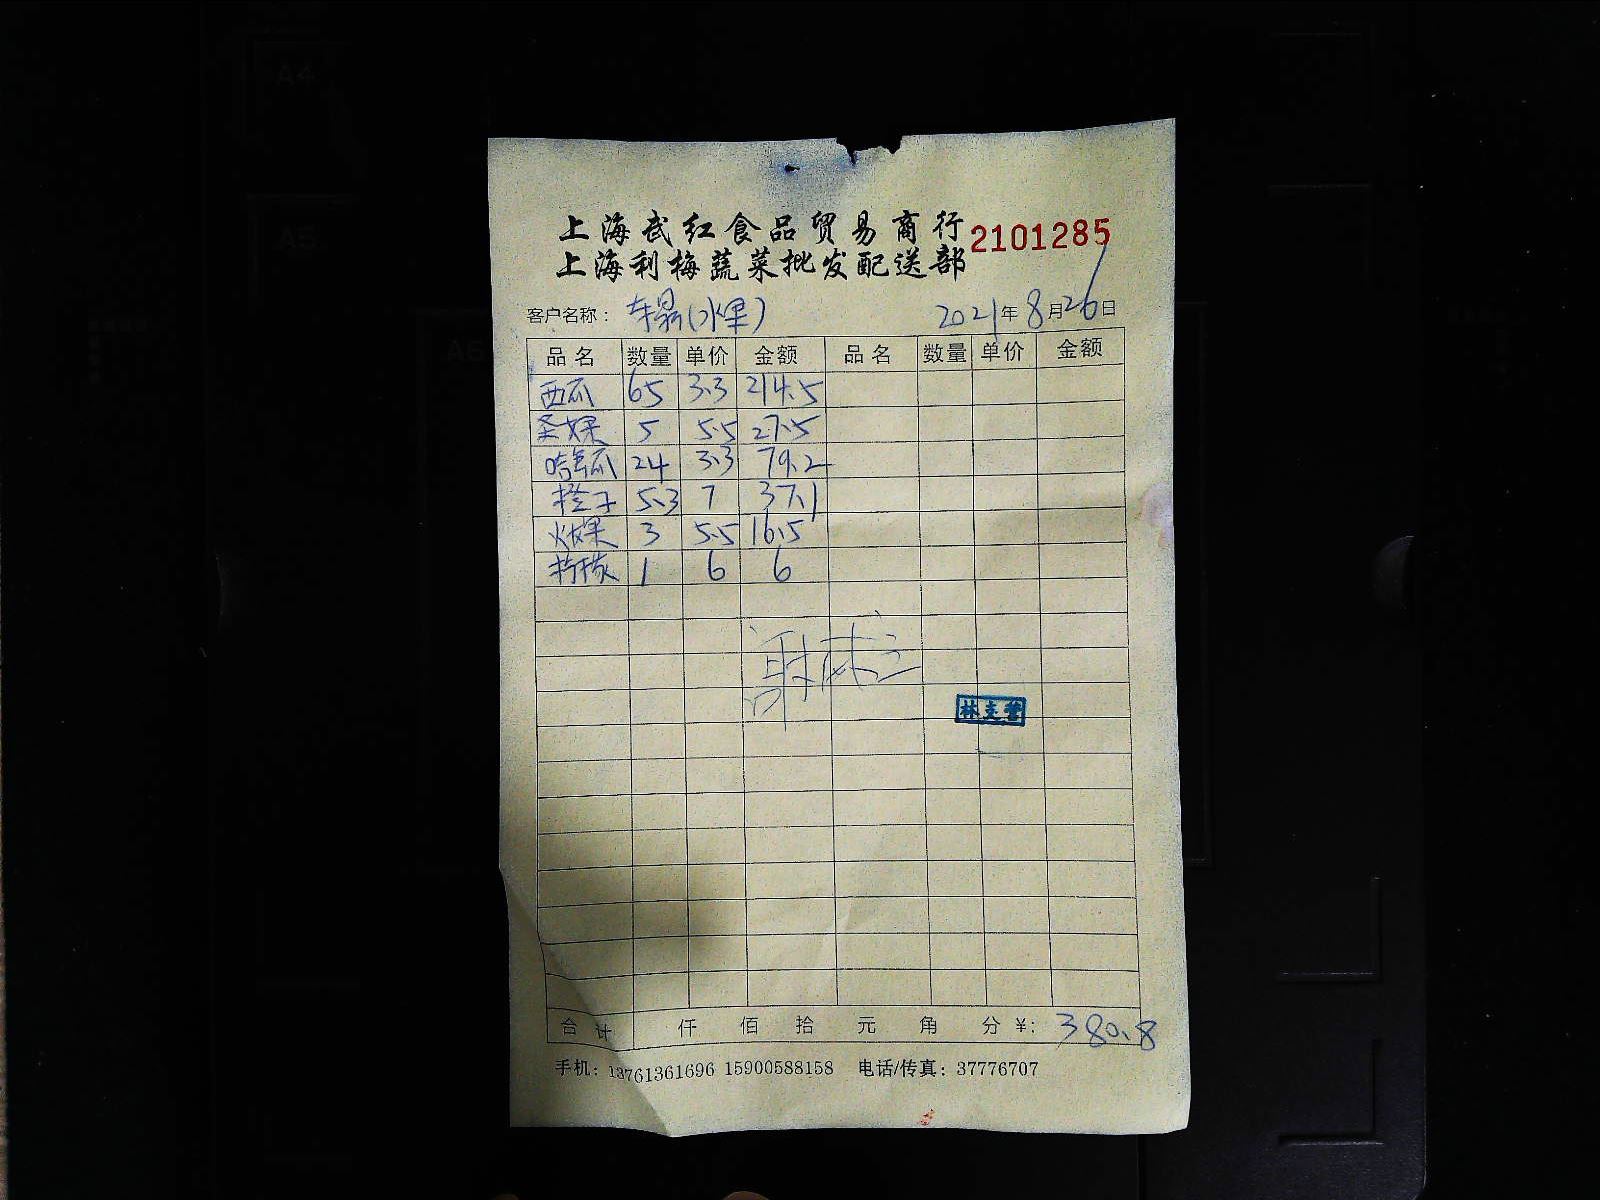 上海武红食品贸易商行
2101285
上海利梅蔬菜批发配送部
客户名称： (水果) 2021年8月26日
品名 数量 单价 金额 品名 数量 单价 金额
西瓜 65 3.3 214.5
圣女果 5 5.5 27.5
哈密瓜 24 3.3 79.2
橙子 5.3 7 37.1
火龙果 3 5.5 16.5
柠檬 1 6 6
林支营
合计 仟 佰 拾 元 角 分 ¥：380.8
手机：13761361696 15900588158 电话/传真：37776707
A4
A5
A6